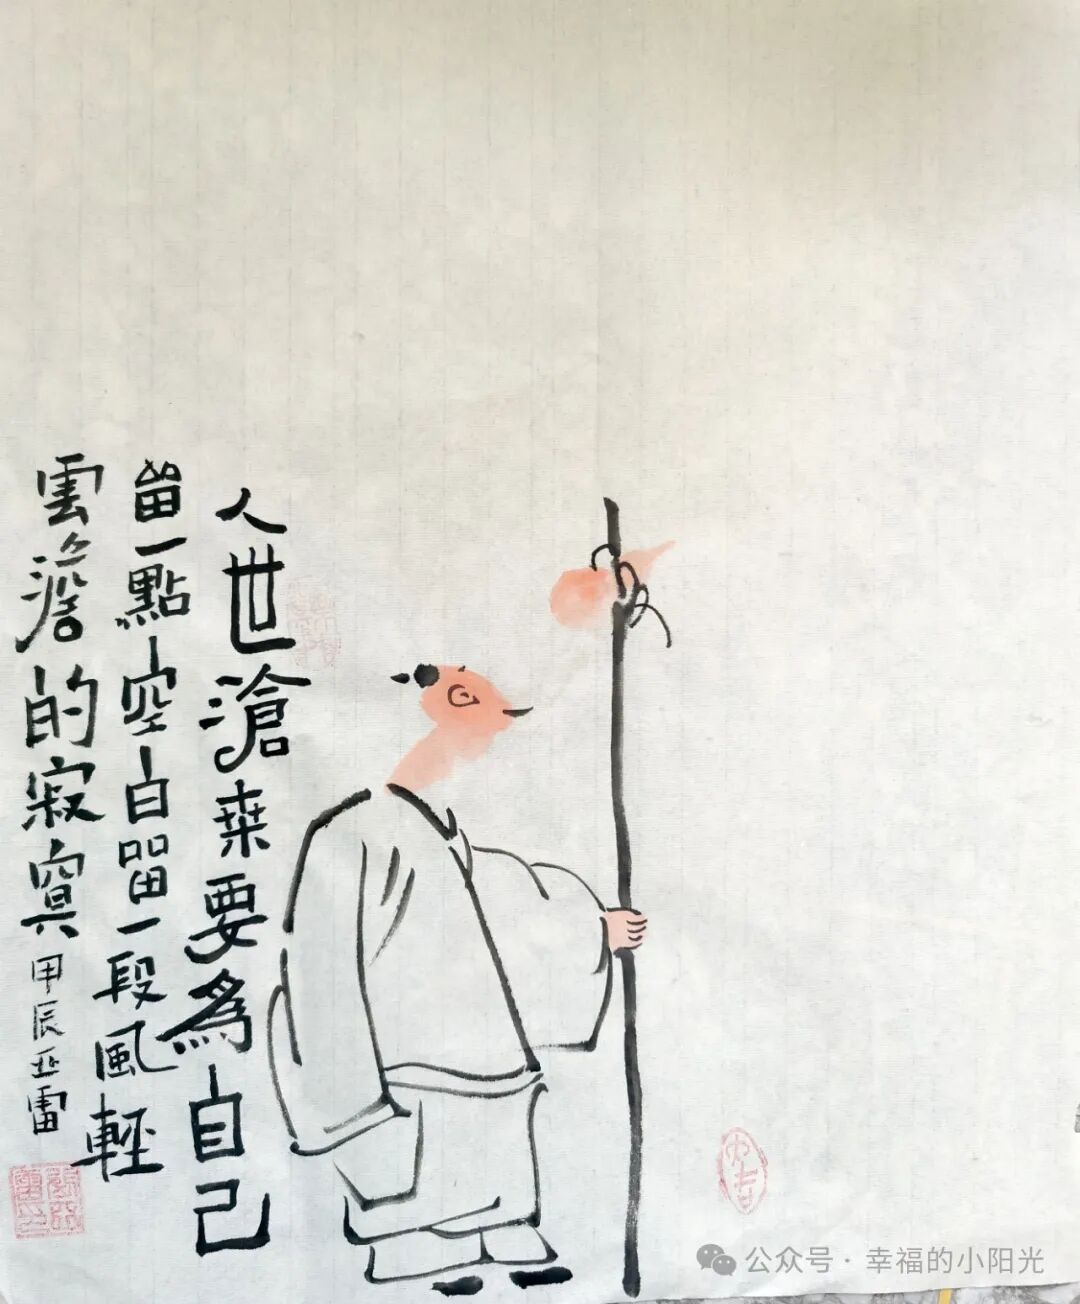 人世滄桒要為自己
畱一點空白畱一段風輕
雲澹的寂寞
甲辰亚雷
公众号·幸福的小阳光